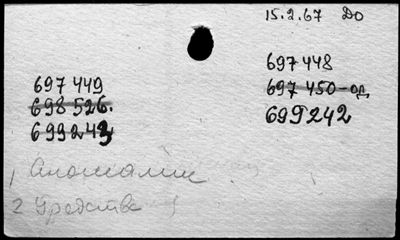 15.2.67 До
697 449
698 526.
699 243
697 448
697 450-од
699242
1 Аномалии
2 Уредства